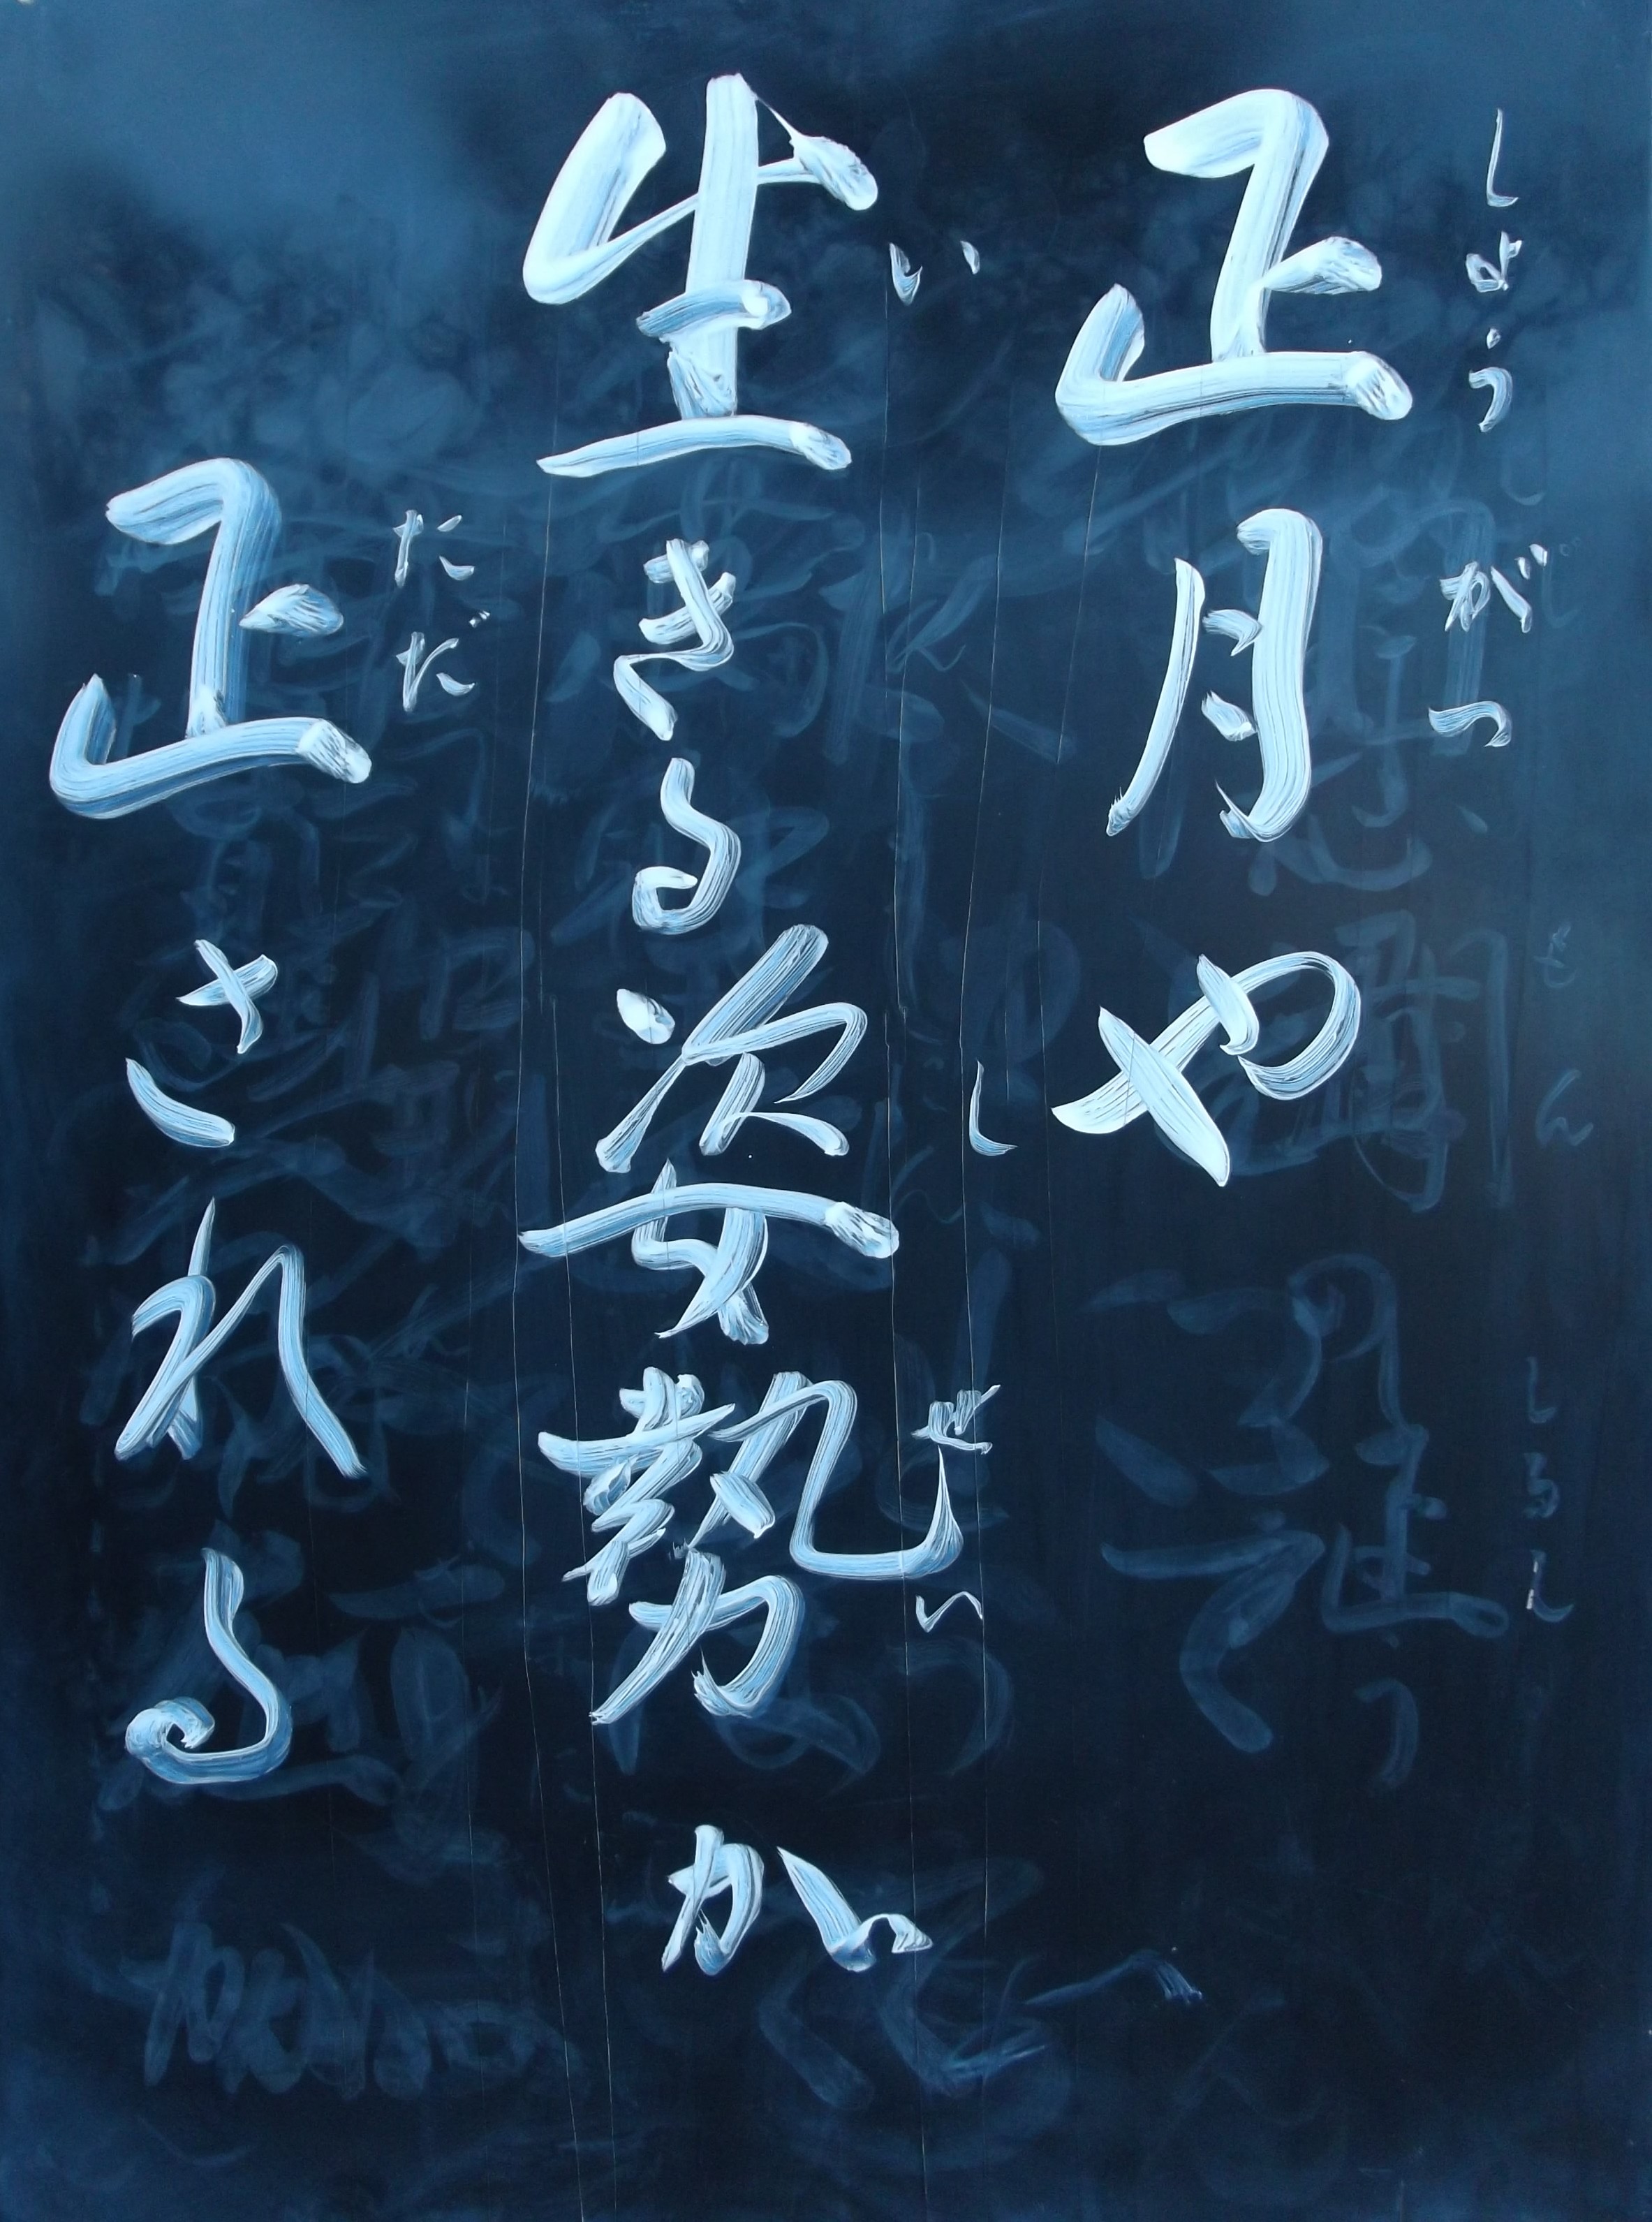 正月や
しょうがつ
生きる姿勢が
い し せい
正される
ただ